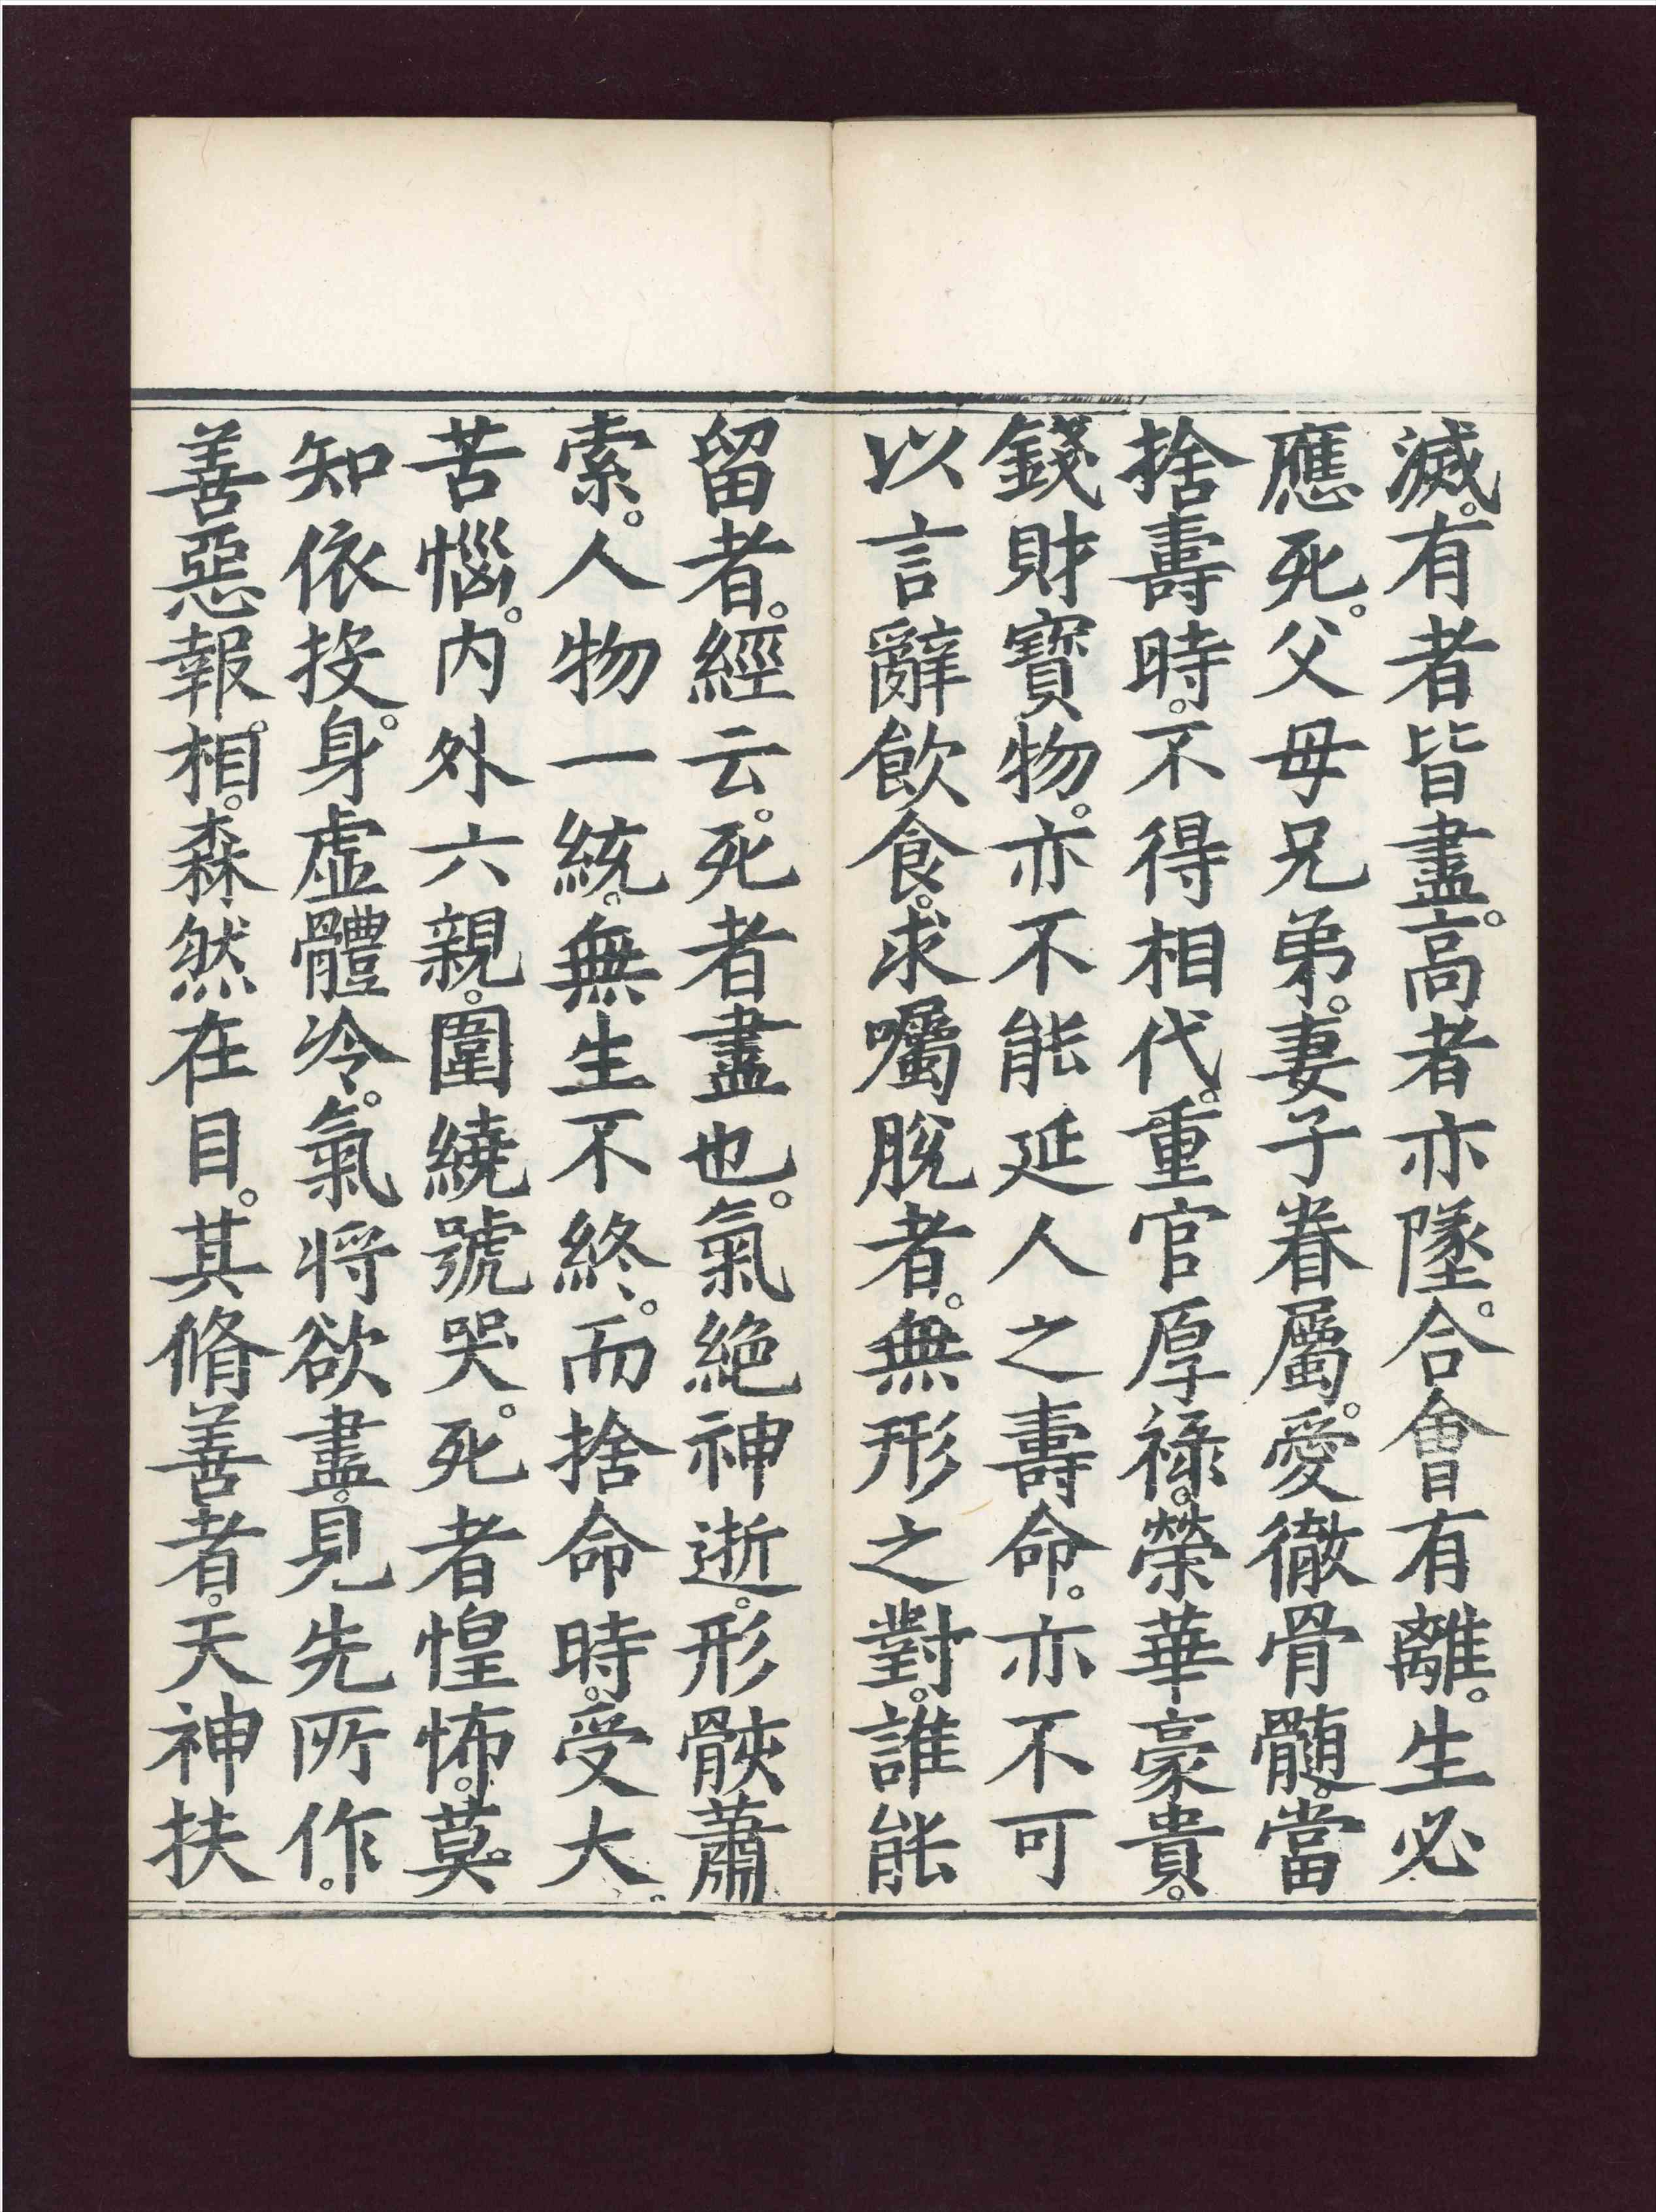 滅。有者皆盡。高者亦墜。合會有離。生必
應死。父母兄弟。妻子眷屬。愛徹骨髓。當
捨壽時。不得相代。重官厚祿。榮華豪貴。
錢財寶物。亦不能延人之壽命。亦不可
以言辭飲食。求囑脫者。無形之對。誰能
留者。經云。死者盡也。氣絕神逝。形骸蕭
索。人物一統。無生不終。而捨命時。受大。
苦惱。內外六親。圍繞號哭。死者惶怖。莫
知依投。身虛體冷。氣將欲盡。見先所作。
善惡報相。森然在目。其脩善者。天神扶